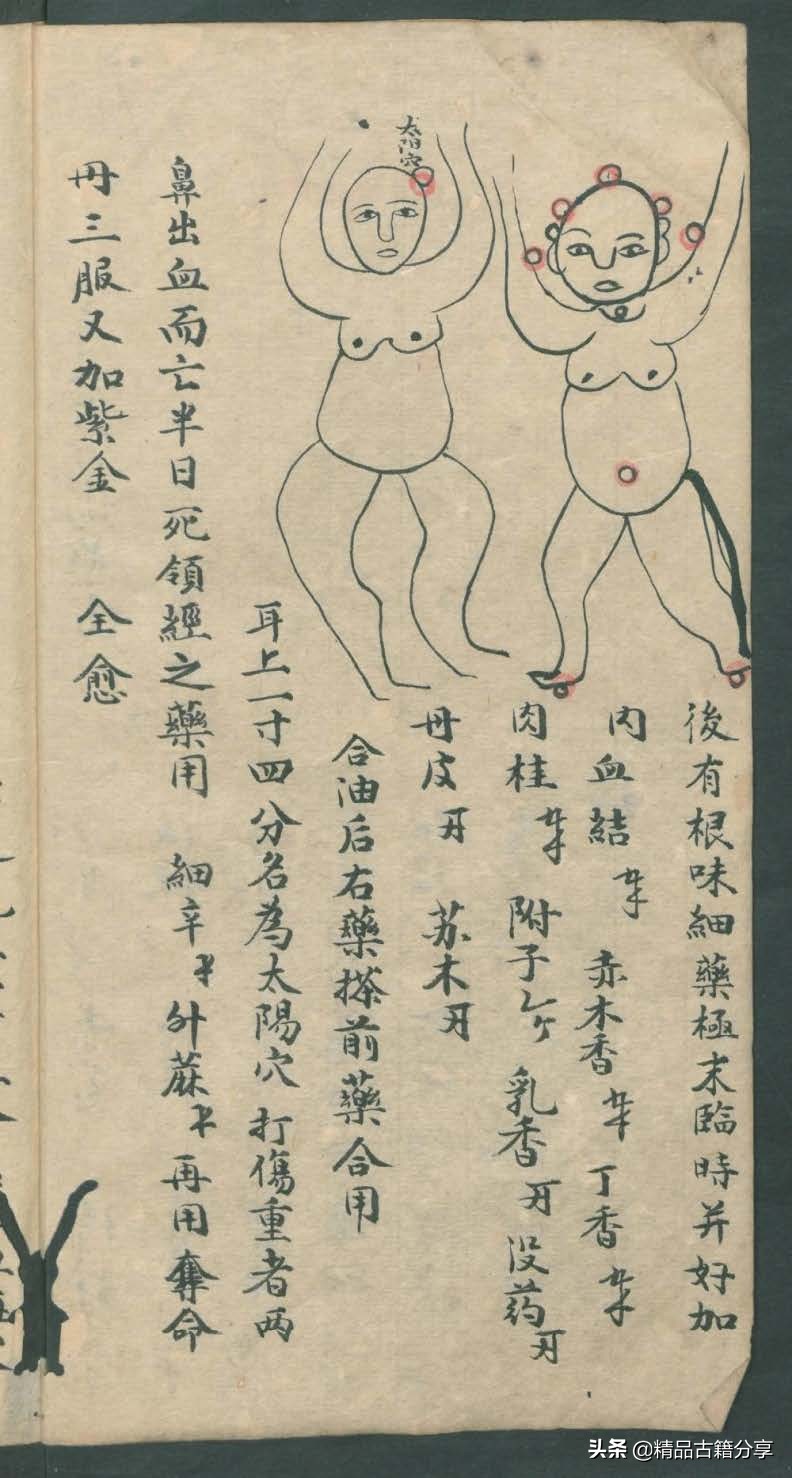 太阳穴
後有根味細藥極末臨時并好加
内血結 赤木香 丁香
肉桂 附子 乳香 没药
丹皮 苏木
合油后右藥搽前藥合用
耳上一寸四分名為太陽穴打傷重者两
鼻出血而亡半日死領經之藥用 細辛 升蔴 再用奪命
丹三服又加紫金 全愈
头条 @精品古籍分享